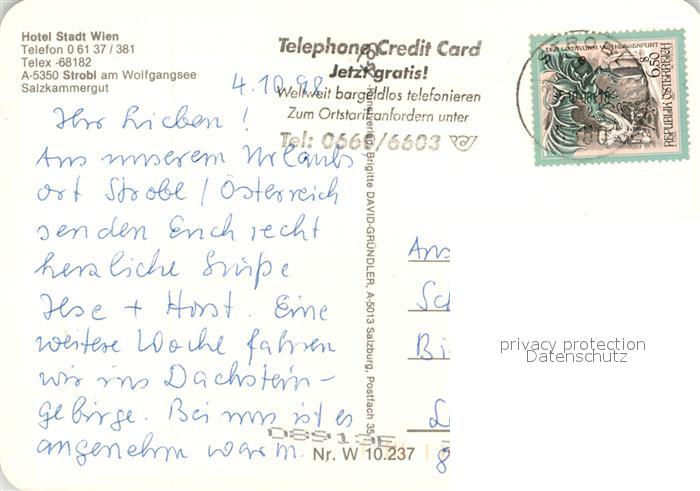 Hotel Stadt Wien
Telefon 0 61 37 / 381
Telex -68182
A-5350 Strobl am Wolfgangsee
Salzkammergut
Telephone Credit Card
Jetzt gratis!
Weltweit bargeldlos telefonieren
Zum Ortstarif anfordern unter
Tel: 0660/6603
4.10.98
Ihr Lieben!
Aus unserem Urlaubs-
ort Strobl / Österreich
senden Euch recht
herzliche Grüße
Ilse + Horst. Eine
weitere Woche fahren
wir ins Dachstein-
gebirge. Bei uns ist es
angenehm warm.
Kunstverlag Brigitte DAVID-GRÜNDLER, A-5013 Salzburg, Postfach 35
Nr. W 10.237
DER LINDWURM VON KLAGENFURT
REPUBLIK ÖSTERREICH
6.50
S
An
Sc
Bi
privacy protection
Datenschutz